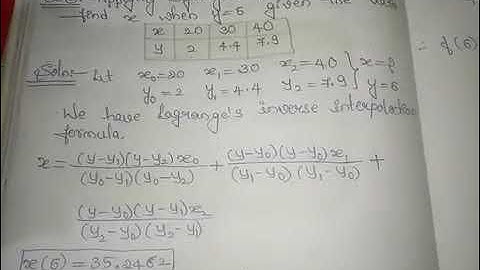 find x when y=6 given the
x 20 30 40
y 2 4.4 7.9
∴ f(6)
Soln:- Let x₀=20 x₁=30 x₂=40 } x=?
y₀=2 y₁=4.4 y₂=7.9 } y=6
We have Lagrange's inverse interpolation
formula.
x = (y-y₁)(y-y₂)x₀/(y₀-y₁)(y₀-y₂) + (y-y₀)(y-y₀)x₁/(y₁-y₀)(y₁-y₀) +
(y-y₀)(y-y₁)x₂/(y₂-y₀)(y₂-y₁)
x(6) = 35.2462